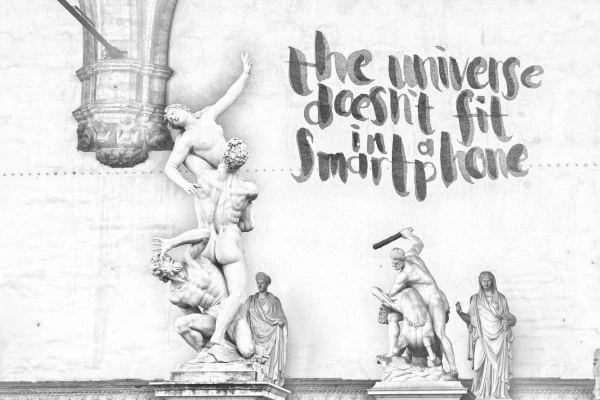 the universe
doesn't fit
in a
smartphone